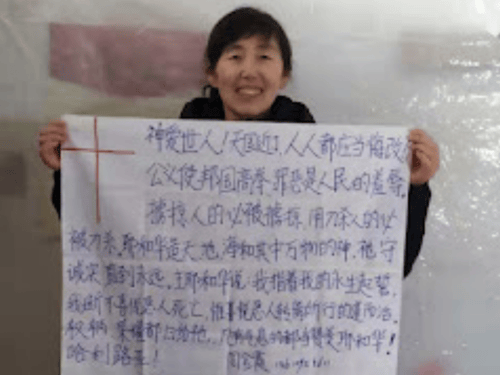 神爱世人！天国近了，人人都应当悔改
公义使邦国高举罪恶是人民的羞辱。
掳掠人的必被掳掠，用刀杀人的必
被刀杀。耶和华造天地，海和其中万物的神。祂守
诚实直到永远。主耶和华说：我指着我的永生起誓，
我断不喜悦恶人死亡，惟喜悦恶人转离所行的道而活。
权柄 荣耀都归给他。凡有气息的都当赞美耶和华！
哈利路亚！